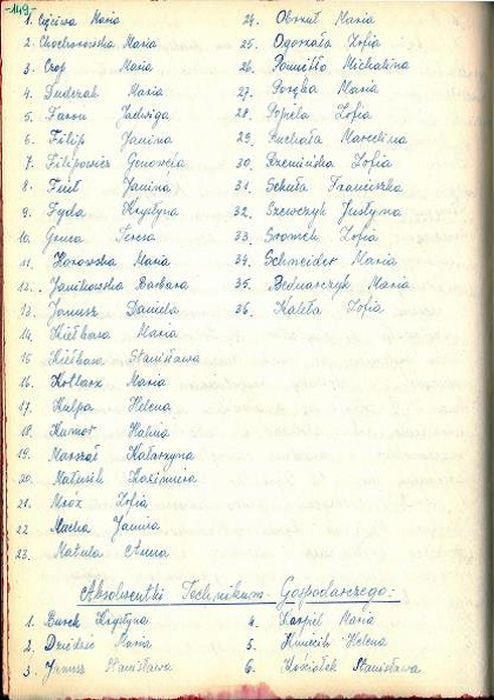 -149-
1. Cyciwa Maria
2. Chochorowska Maria
3. Czop Maria
4. Dudczak Maria
5. Faron Jadwiga
6. Filip Janina
7. Filipowicz Genowefa
8. Janina
9. Fyda Krystyna
10. Teresa
11. Maria
12. Janikowska Barbara
13. Janusz Daniela
14. Kiełbasa Maria
15 Kiełbasa Stanisława
16. Kollarz Maria
17. Kulpa Helena
18. Kumor Halina
19. Marszał Katarzyna
20. Matusik Kazimiera
21. Mróz Zofia
22 Mucha Janina
23. Matula Anna
24. Obrzut Maria
25. Ogorzała Zofia
26. Pomietło Michalina
27. Poręba Maria
28. Popiela Zofia
29. Puchała Marcelina
30. Rzemińska Zofia
31. Sekuła Franciszka
32. Szewczyk Justyna
33. Sromek Zofia
34. Schneider Maria
35. Bednarczyk Maria
36. Kaleta Zofia
Absolwentki Technikum Gospodarczego:
1. Burek Krystyna
2. Dziedzic Maria
3. Janusz Stanisława
4. Karpiel Maria
5. Kmiecik Helena
6. Kościołek Stanisława